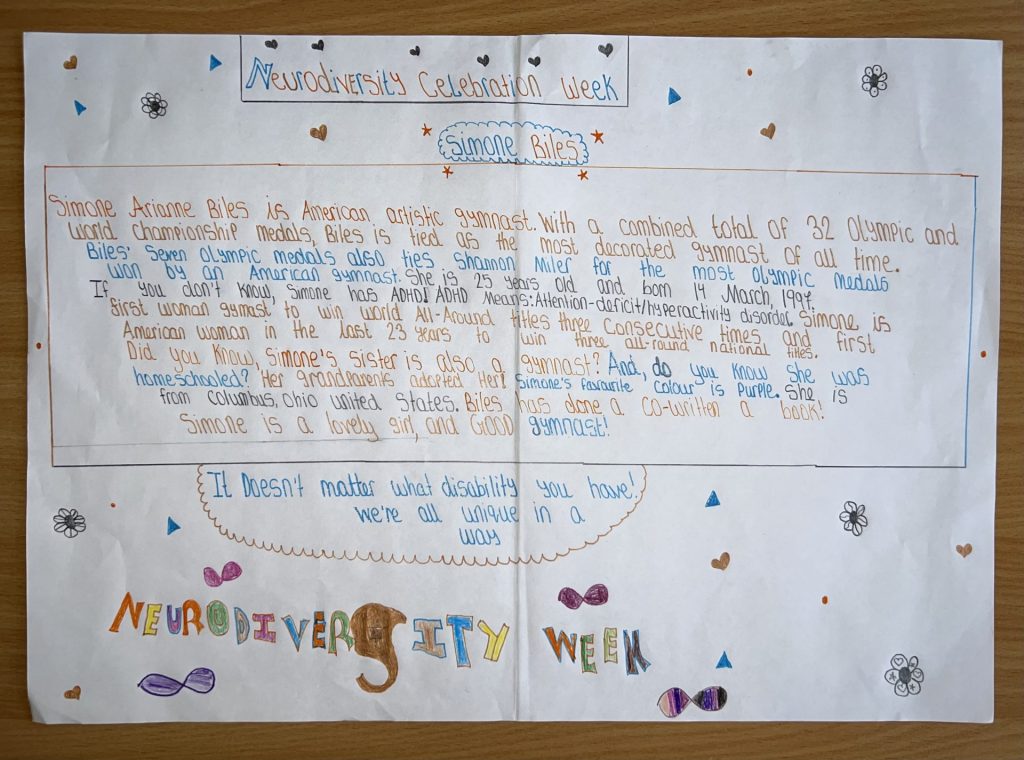 Neurodiversity Celebration Week
Simone Biles
Simone Arianne Biles is American artistic gymnast. With a combined total of 32 Olympic and
world championship medals, Biles is tied as the most decorated gymnast of all time.
Biles' Seven Olympic medals also ties Shannon Miler for the most olympic medals
won by an American gymnast. She is 25 years old and born 14 March, 1997.
If you don't know, Simone has ADHD! ADHD Means: Attention-deficit/hyperactivity disorder. Simone is
first woman gymast to win world All-Around titles three consecutive times and first
American woman in the last 23 years to win three all-round national titles.
Did you know, Simone's sister is also a gymnast? And, do you know she was
homeschooled? Her grandparents adopted Her! Simone's favourite colour is Purple. She is
from columbus, Ohio united States. Biles has done a co-written a book!
Simone is a lovely girl, and GOOD gymnast!
It Doesn't matter what disability you have!
we're all unique in a
way
NEURODIVERSITY WEEK